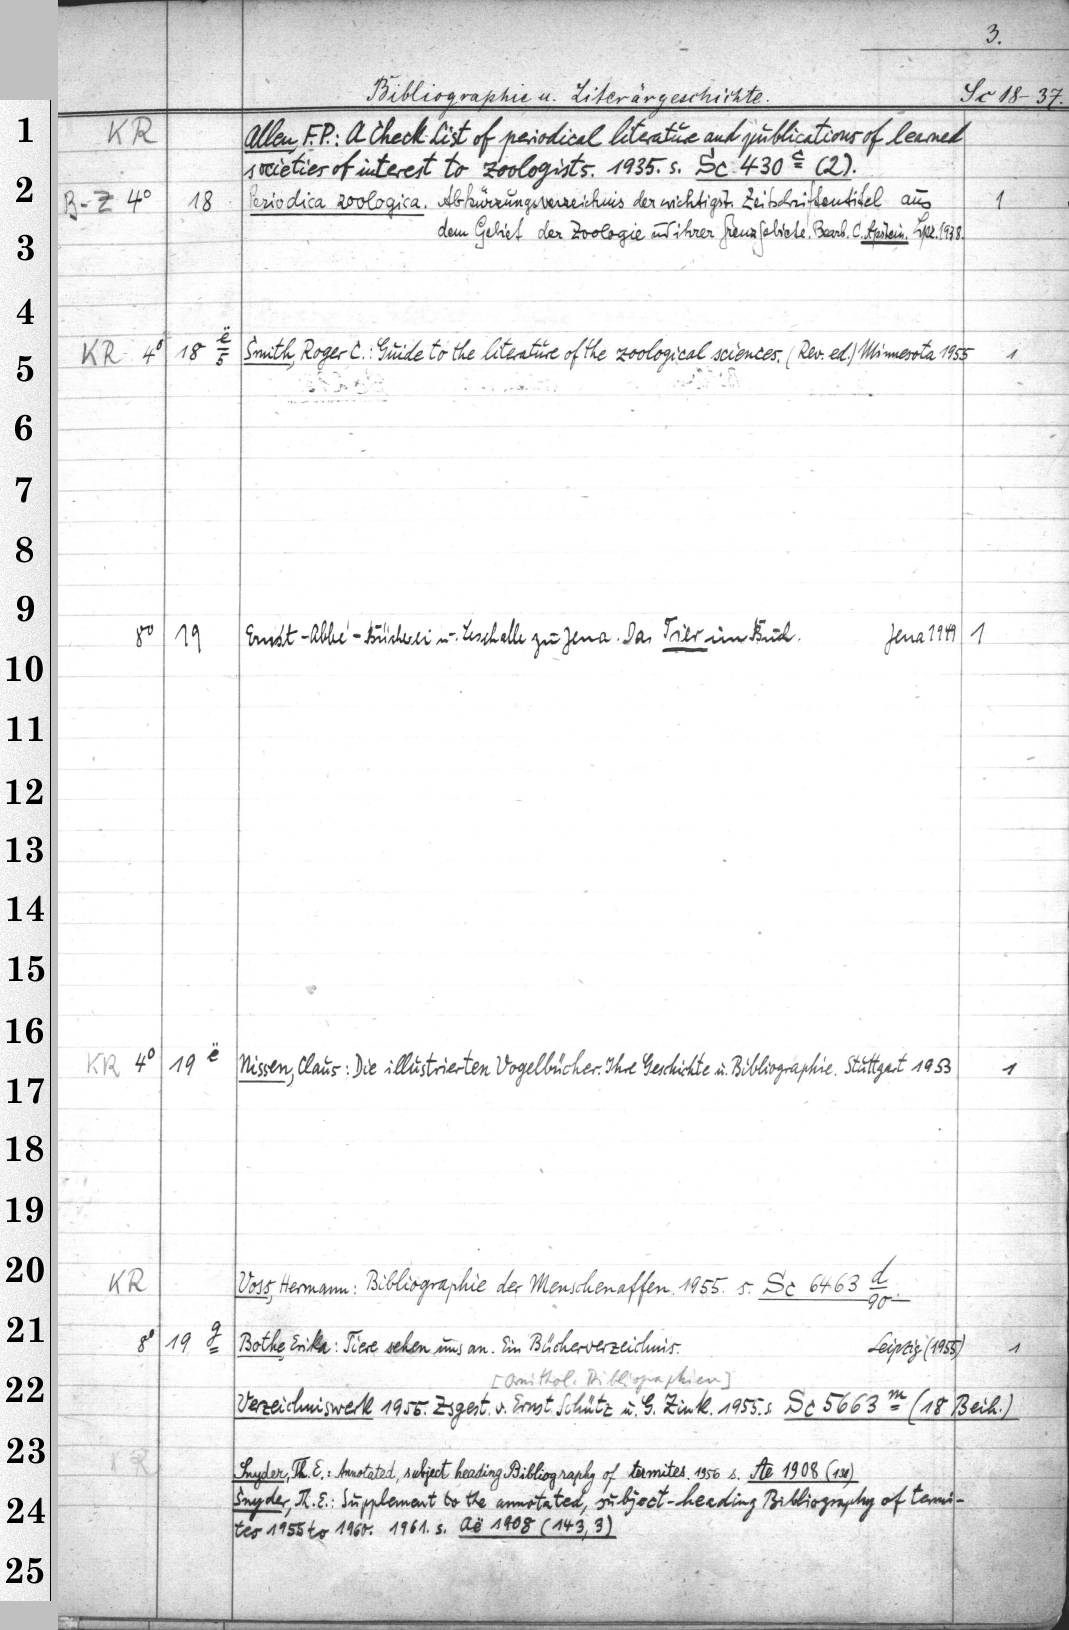 3.
Bibliographie u. Literärgeschichte. Sc 18-37.
1
KR Allen, F.P.: A Check-List of periodical literature and publications of learned
societies of interest to zoologists. 1935. s. Sc 430 c (2).
2
B-Z 4° 18 Periodica zoologica. Abkürzungsverzeichnis der wichtigst. Zeitschriftentitel aus 1
3
dem Gebiet der Zoologie und ihrer Grenzgebiete. Bearb. C. Apstein. Lpz. 1938.
4
KR 4° 18 ë/5 Smith, Roger C.: Guide to the literature of the zoological sciences. (Rev. ed.) Minnesota 1955 1
5
6
7
8
9
8° 19 Ernst-Abbe-Bücherei u. Lesehalle zu Jena. Das Tier im Buch. Jena 1949 1
10
11
12
13
14
15
16
KR 4° 19 ë Nissen, Claus: Die illustrierten Vogelbücher. Ihre Geschichte u. Bibliographie. Stuttgart 1953 1
17
18
19
20
KR Voss, Hermann: Bibliographie der Menschenaffen. 1955. s. Sc 6463 d/90
21
8° 19 g Bothe, Erika: Tiere sehen uns an. Ein Bücherverzeichnis. Leipzig (1955) 1
22
[Ornithol. Bibliographien]
Verzeichniswerk 1955. Zsgest. v. Ernst Schütz u. G. Zink. 1955. s Sc 5663 m (18 Beih.)
23
KR Snyder, Th. E.: Annotated, subject heading Bibliography of termites. 1956 s. Ae 1908 (130)
24
Snyder, Th. E.: Supplement to the annotated, subject-heading Bibliography of termi-
tes 1955 to 1960. 1961. s. Aë 1908 (143,3)
25